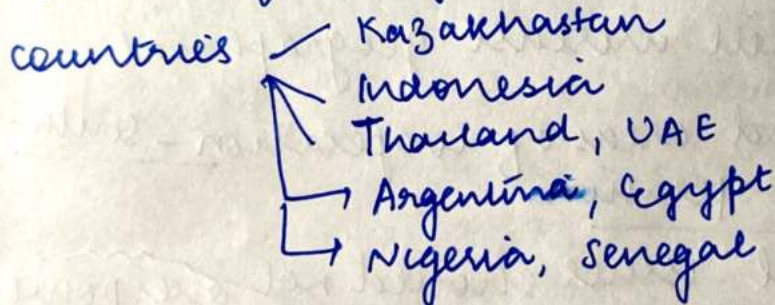 countries
Kazakhastan
Indonesia
Thailand, UAE
Argentina, Egypt
Nigeria, Senegal